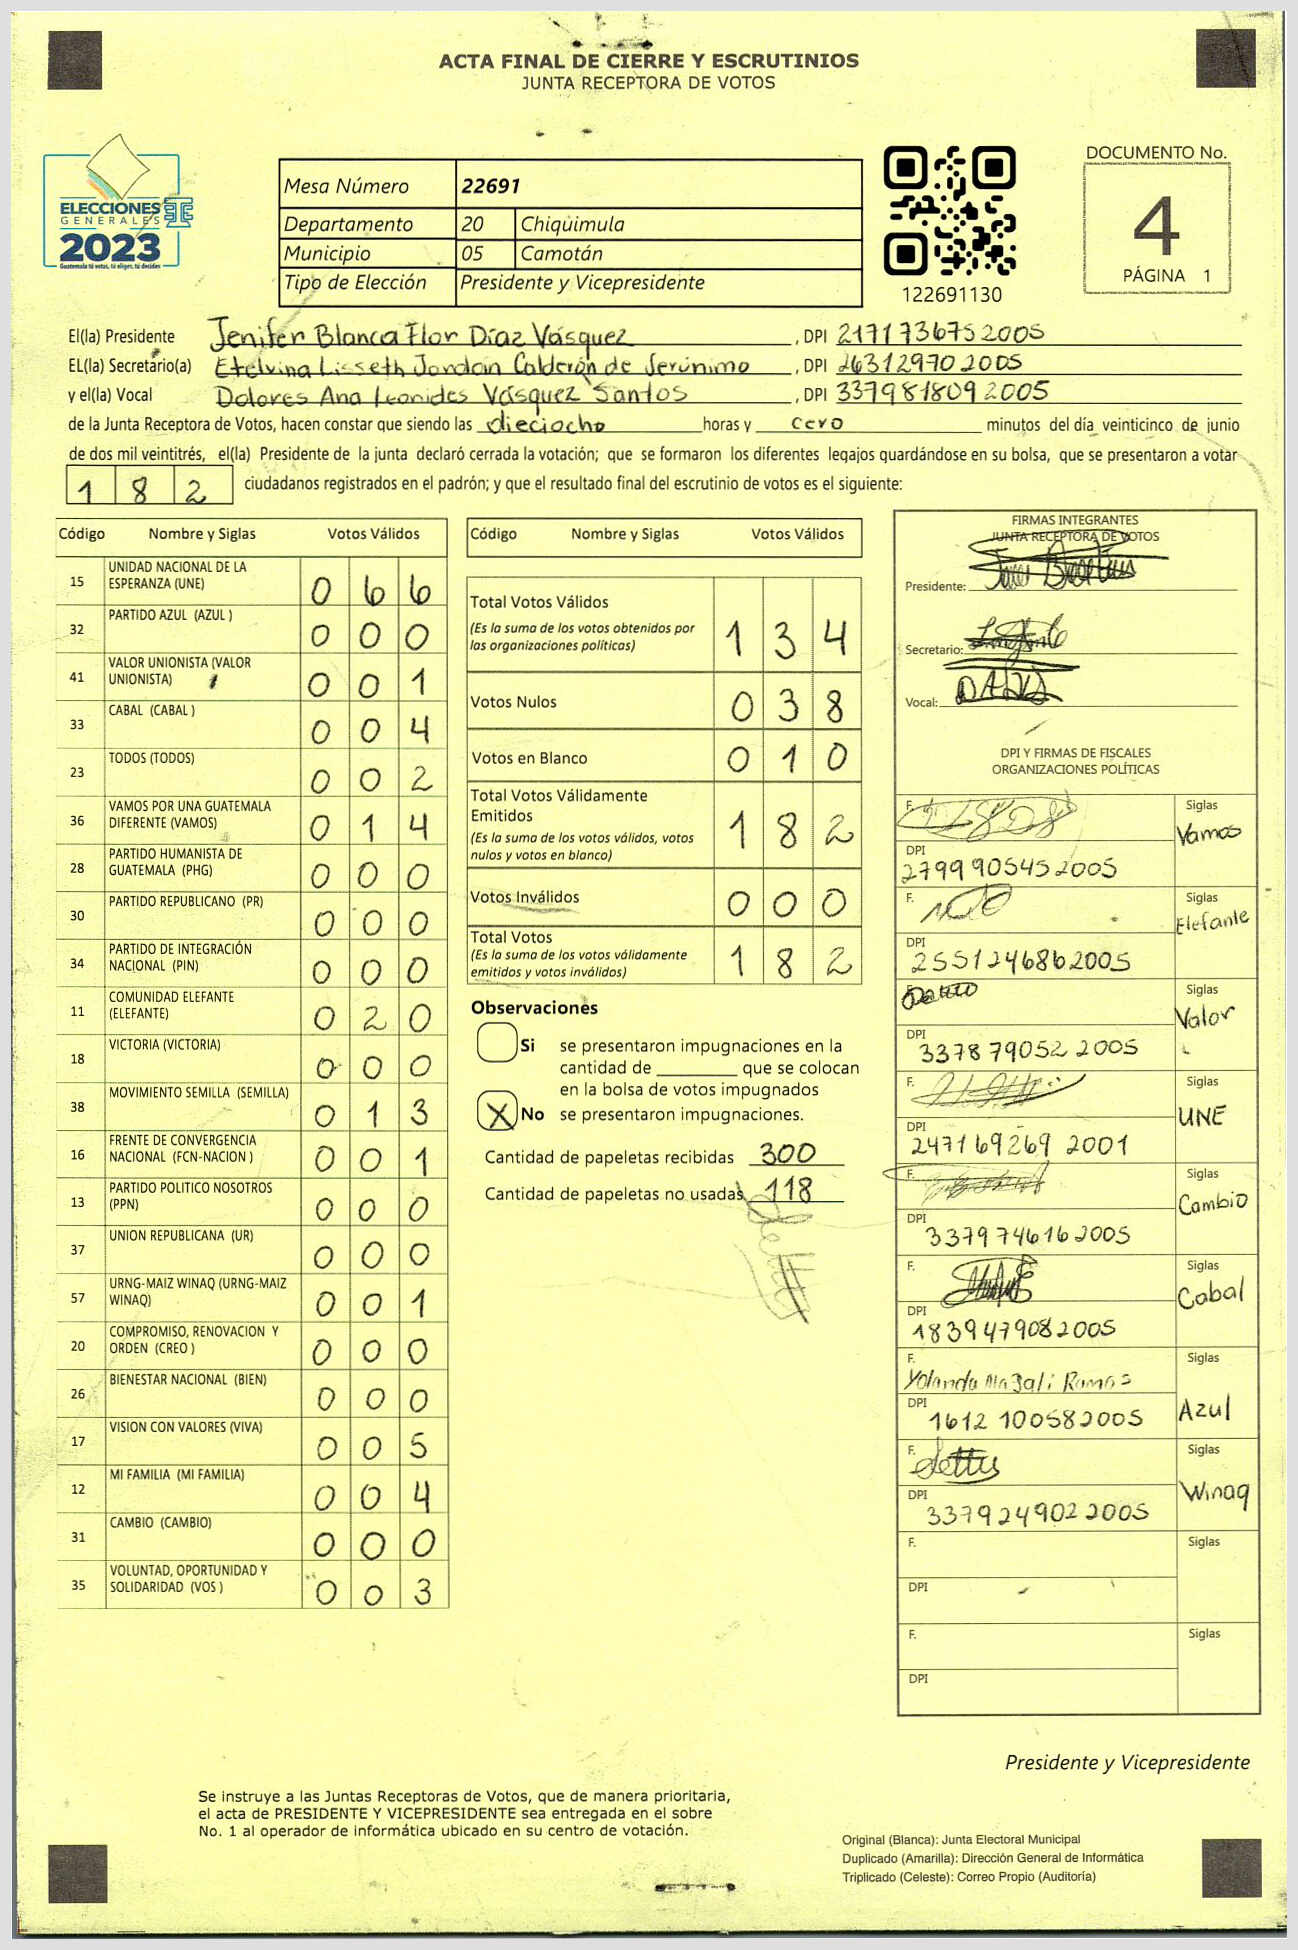 ACTA FINAL DE CIERRE Y ESCRUTINIOS
JUNTA RECEPTORA DE VOTOS
ELECCIONES
GENERALES
2023
Guatemala tú votas, tú eliges, tú decides
Mesa Número 22691
Departamento 20 Chiquimula
Municipio 05 Camotán
Tipo de Elección Presidente y Vicepresidente
122691130
DOCUMENTO No.
4
PÁGINA 1
El(la) Presidente Jenifer Blanca Flor Díaz Vásquez, DPI 2171736752005
EL(la) Secretario(a) Etelvina Lisseth Jordán Calderón de Jerónimo, DPI 263129702005
y el(la) Vocal Dolores Ana Leonides Vásquez Santos, DPI 3379818092005
de la Junta Receptora de Votos, hacen constar que siendo las dieciocho horas y cero minutos del día veinticinco de junio
de dos mil veintitrés, el(la) Presidente de la junta declaró cerrada la votación; que se formaron los diferentes legajos guardándose en su bolsa, que se presentaron a votar
182 ciudadanos registrados en el padrón; y que el resultado final del escrutinio de votos es el siguiente:
Código Nombre y Siglas Votos Válidos
15 UNIDAD NACIONAL DE LA ESPERANZA (UNE) 066
32 PARTIDO AZUL (AZUL ) 000
41 VALOR UNIONISTA (VALOR UNIONISTA) 001
33 CABAL (CABAL ) 004
23 TODOS (TODOS) 002
36 VAMOS POR UNA GUATEMALA DIFERENTE (VAMOS) 014
28 PARTIDO HUMANISTA DE GUATEMALA (PHG) 000
30 PARTIDO REPUBLICANO (PR) 000
34 PARTIDO DE INTEGRACIÓN NACIONAL (PIN) 000
11 COMUNIDAD ELEFANTE (ELEFANTE) 020
18 VICTORIA (VICTORIA) 000
38 MOVIMIENTO SEMILLA (SEMILLA) 013
16 FRENTE DE CONVERGENCIA NACIONAL (FCN-NACION ) 001
13 PARTIDO POLITICO NOSOTROS (PPN) 000
37 UNION REPUBLICANA (UR) 000
57 URNG-MAIZ WINAQ (URNG-MAIZ WINAQ) 001
20 COMPROMISO, RENOVACION Y ORDEN (CREO ) 000
26 BIENESTAR NACIONAL (BIEN) 000
17 VISION CON VALORES (VIVA) 005
12 MI FAMILIA (MI FAMILIA) 004
31 CAMBIO (CAMBIO) 000
35 VOLUNTAD, OPORTUNIDAD Y SOLIDARIDAD (VOS ) 003
Código Nombre y Siglas Votos Válidos
Total Votos Válidos 134
(Es la suma de los votos obtenidos por
las organizaciones políticas)
Votos Nulos 038
Votos en Blanco 010
Total Votos Válidamente
Emitidos 182
(Es la suma de los votos válidos, votos
nulos y votos en blanco)
Votos Inválidos 000
Total Votos 182
(Es la suma de los votos válidamente
emitidos y votos inválidos)
Observaciones
Si se presentaron impugnaciones en la
cantidad de ________ que se colocan
en la bolsa de votos impugnados
X No se presentaron impugnaciones.
Cantidad de papeletas recibidas 300
Cantidad de papeletas no usadas 118
FIRMAS INTEGRANTES
JUNTA RECEPTORA DE VOTOS
Presidente:
Secretario:
Vocal:
DPI Y FIRMAS DE FISCALES
ORGANIZACIONES POLÍTICAS
F. Siglas Vamos
DPI 2799905452005
F. Siglas Elefante
DPI 2551246862005
F. Siglas Valor
DPI 3378790522005
F. Siglas UNE
DPI 2471692692001
F. Siglas Cambio
DPI 3379746162005
F. Siglas Cabal
DPI 1839479082005
F. Yolanda Magali Ramos Siglas Azul
DPI 1612100582005
F. Siglas Winaq
DPI 3379249022005
F. Siglas
DPI
F. Siglas
DPI
Presidente y Vicepresidente
Se instruye a las Juntas Receptoras de Votos, que de manera prioritaria,
el acta de PRESIDENTE Y VICEPRESIDENTE sea entregada en el sobre
No. 1 al operador de informática ubicado en su centro de votación.
Original (Blanca): Junta Electoral Municipal
Duplicado (Amarilla): Dirección General de Informática
Triplicado (Celeste): Correo Propio (Auditoría)